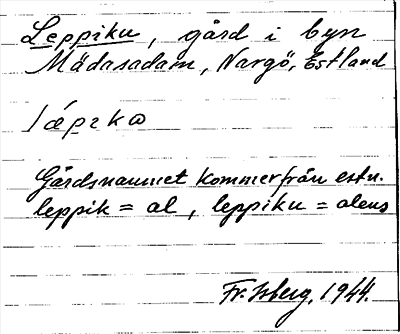 Leppiku, gård i byn
Mädasadam, Nargö, Estland
lǽpɪkɷ
Gårdsnamnet kommer från estn.
leppik = al, leppiku = alens
Fr. Isberg, 1944.